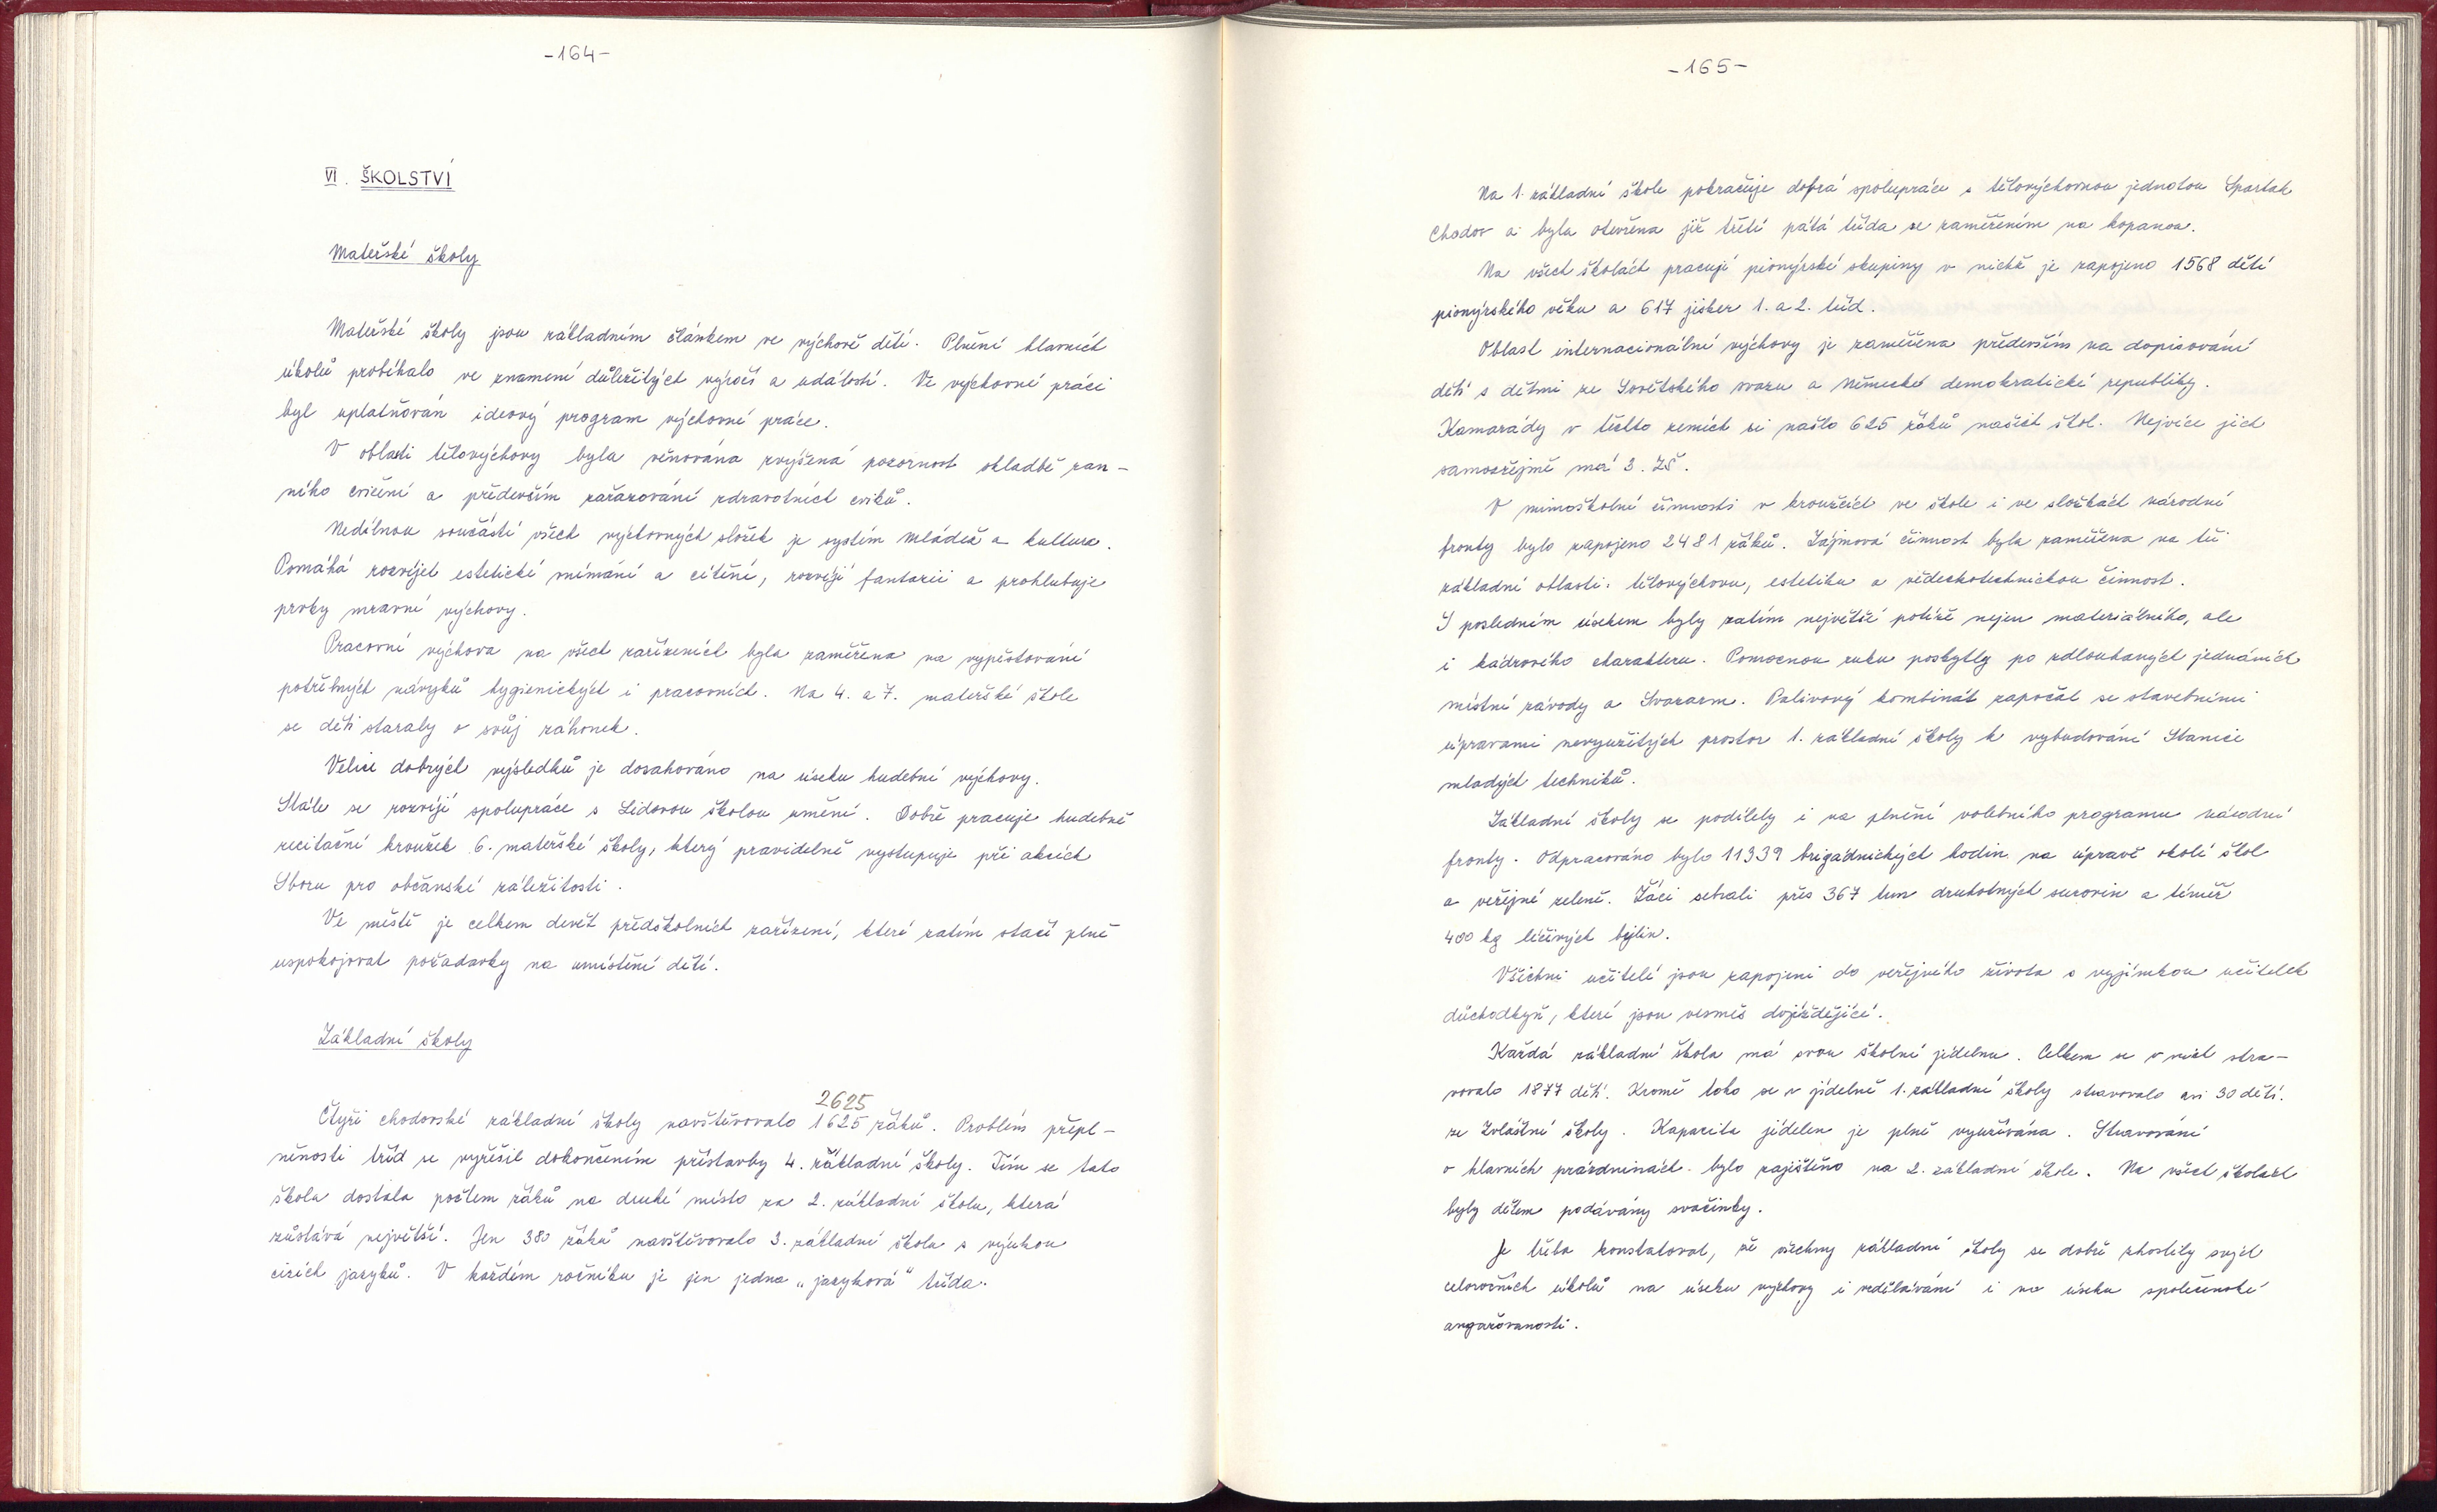 -164-
VI. ŠKOLSTVÍ
Mateřské školy
Mateřské školy jsou základním článkem ve výchově dětí. Plnění hlavních
úkolů probíhalo ve znamení důležitých výročí a událostí. Ve výchovné práci
byl uplatňován ideový program výchovné práce.
V oblasti tělovýchovy byla věnována zvýšená pozornost skladbě ran-
ního cvičení a především zařazování zdravotních cviků.
Nedílnou součástí všech výchovných složek je systém mládež a kultura.
Pomáhá rozvíjet estetické vnímání a cítění, rozvíjí fantazii a prohlubuje
prvky mravní výchovy.
Pracovní výchova na všech zařízeních byla zaměřena na vypěstování
potřebných návyků hygienických i pracovních. Na 4. a 7. mateřské škole
se děti staraly o svůj záhonek.
Velice dobrých výsledků je dosahováno na úseku hudební výchovy.
Stále se rozvíjí spolupráce s Lidovou školou umění. Dobře pracuje hudebně
recitační kroužek 6. mateřské školy, který pravidelně vystupuje při akcích
Sboru pro občanské záležitosti.
Ve městě je celkem devět předškolních zařízení, které zatím stačí plně
uspokojovat požadavky na umístění dětí.
Základní školy
2625
Čtyři chodovské základní školy navštěvovalo 1625 žáků. Problém přepl-
něnosti tříd se vyřešil dokončením přístavby 4. základní školy. Tím se tato
škola dostala počtem žáků na druhé místo za 2. základní školu, která
zůstává největší. Jen 380 žáků navštěvovalo 3. základní škola s výukou
cizích jazyků. V každém ročníku je jen jedna „jazyková" třída.
-165-
Na 1. základní škole pokračuje dobrá spolupráce s tělovýchovnou jednotou Spartak
Chodov a byla otevřena již třetí pátá třída se zaměřením na kopanou.
Na všech školách pracují pionýrské skupiny v nichž je zapojeno 1568 dětí
pionýrského věku a 617 jisker 1. a 2. tříd.
Oblast internacionální výchovy je zaměřena především na dopisování
dětí s dětmi ze Sovětského svazu a Německé demokratické republiky.
Kamarády v těchto zemích si našlo 625 žáků našich škol. Nejvíce jich
samozřejmě má 3. ZŠ.
V mimoškolní činnosti v kroužcích ve škole i ve složkách národní
fronty bylo zapojeno 2481 žáků. Zájmová činnost byla zaměřena na tři
základní oblasti: tělovýchovu, estetiku a vědeckotechnickou činnost.
S posledním úsekem byly zatím největší potíže nejen materiálního, ale
i kádrového charakteru. Pomocnou ruku poskytly po zdlouhavých jednáních
místní závody a Svazarm. Palivový kombinát započal se stavebními
úpravami nevyužitých prostor 1. základní školy k vybudování Stanice
mladých techniků.
Základní školy se podílely i na plnění volebního programu národní
fronty. Odpracováno bylo 11339 brigádnických hodin na úpravě okolí škol
a veřejné zeleně. Žáci sebrali přes 367 tun druhotných surovin a téměř
400 kg léčivých bylin.
Všichni učitelé jsou zapojeni do veřejného života s vyjímkou učitelek
důchodkyň, které jsou vesměs dojíždějící.
Každá základní škola má svou školní jídelnu. Celkem se v nich stra-
vovalo 1877 dětí. Kromě toho se v jídelně 1. základní školy stravovalo asi 30 dětí.
ze Zvláštní školy. Kapacita jídelen je plně využívána. Stravování
o hlavních prázdninách bylo zajištěno na 2. základní škole. Na všech školách
byly dětem podávány svačinky.
Je třeba konstatovat, že všechny základní školy se dobře zhostily svých
celoročních úkolů na úseku výchovy i vzdělávání i na úseku společenské
angažovanosti.